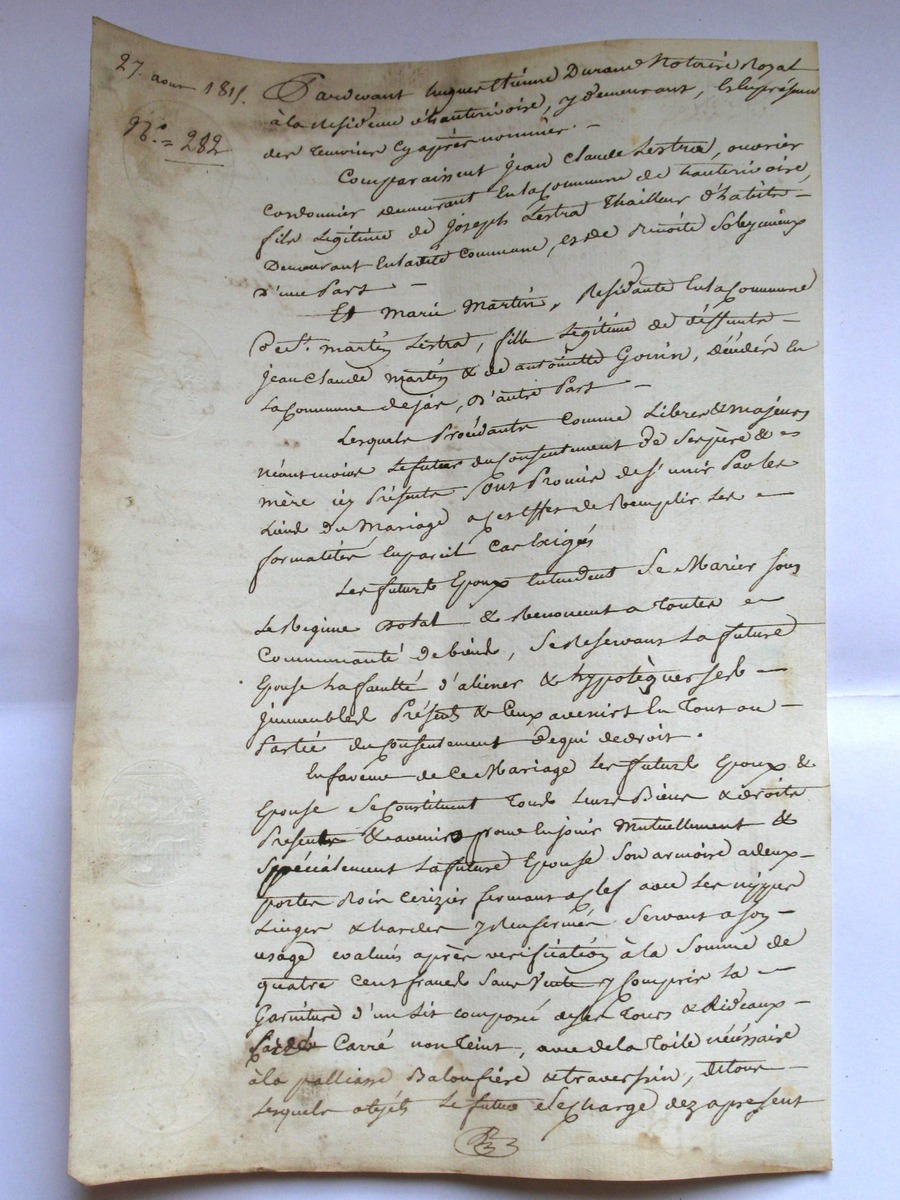 27. aout 1815.
N.o = 282
Pardevant hugues Etienne Durand Notaire Royal
à la Residence d'hauterivoire, y demeurant, & En présence
des temoins Cy après nommés. -
Comparaissent Jean Claude Lestra, ouvrier
Cordonnier demeurant En la Commune de hauterivoire,
fils Légitime de Joseph Lestra Thailleur d'habits -
Demeurant En ladite Commune, et de Benoite Soleymieux
D'une Part -
Et Marie Martin, Residante En la Commune
De St. martin Lestra, fille Légitime de deffunts -
Jean Claude martin & de antoinette Gonin, Décédés En
La Commune de Jas, D'autre Part -
Lesquels Procédants Comme Libres & majeurs
Néantmoins Le futur du Consentement De Ses père & =
mère icy Présents Sont Promis de S'unir Par les
Liens du Mariage a cet effet de Remplir Les =
formalités En pareil Cas Exigés
Les futurs Epoux Entendent Se Marier Sous
Le Regime Dotal & Renoncent a Toutes =
Communauté de biens, Se Reservant La future
Epouse La faculté d'aliener & hypotèquer Ses -
Immeubles Présents & Ceux avenirs En Tout ou -
Partie du Consentement De qui de droit.
En faveur de Ce Mariage Les futurs Epoux &
Epouse Se Constituent Tous Leurs Biens & droits
Présents & avenirs pour En jouir Mutuellement &
Spécialement La future Epouse Son armoire a deux -
portes Bois Cerizier fermant a Clef avec Les nippes
Linges & hardes y Renfermés Servant a Son -
usage évalués après verification à la Somme de
quatre Cent francs Sans Vente y Compris La =
Garniture d'un Lit composé de Ses Tours & Rideaux -
Carré non Teint, avec de la Toile néssésaire
à la palliasse Baloufière & traversin, de tous -
Lesquels objets Le futur Se Charge dez a présent